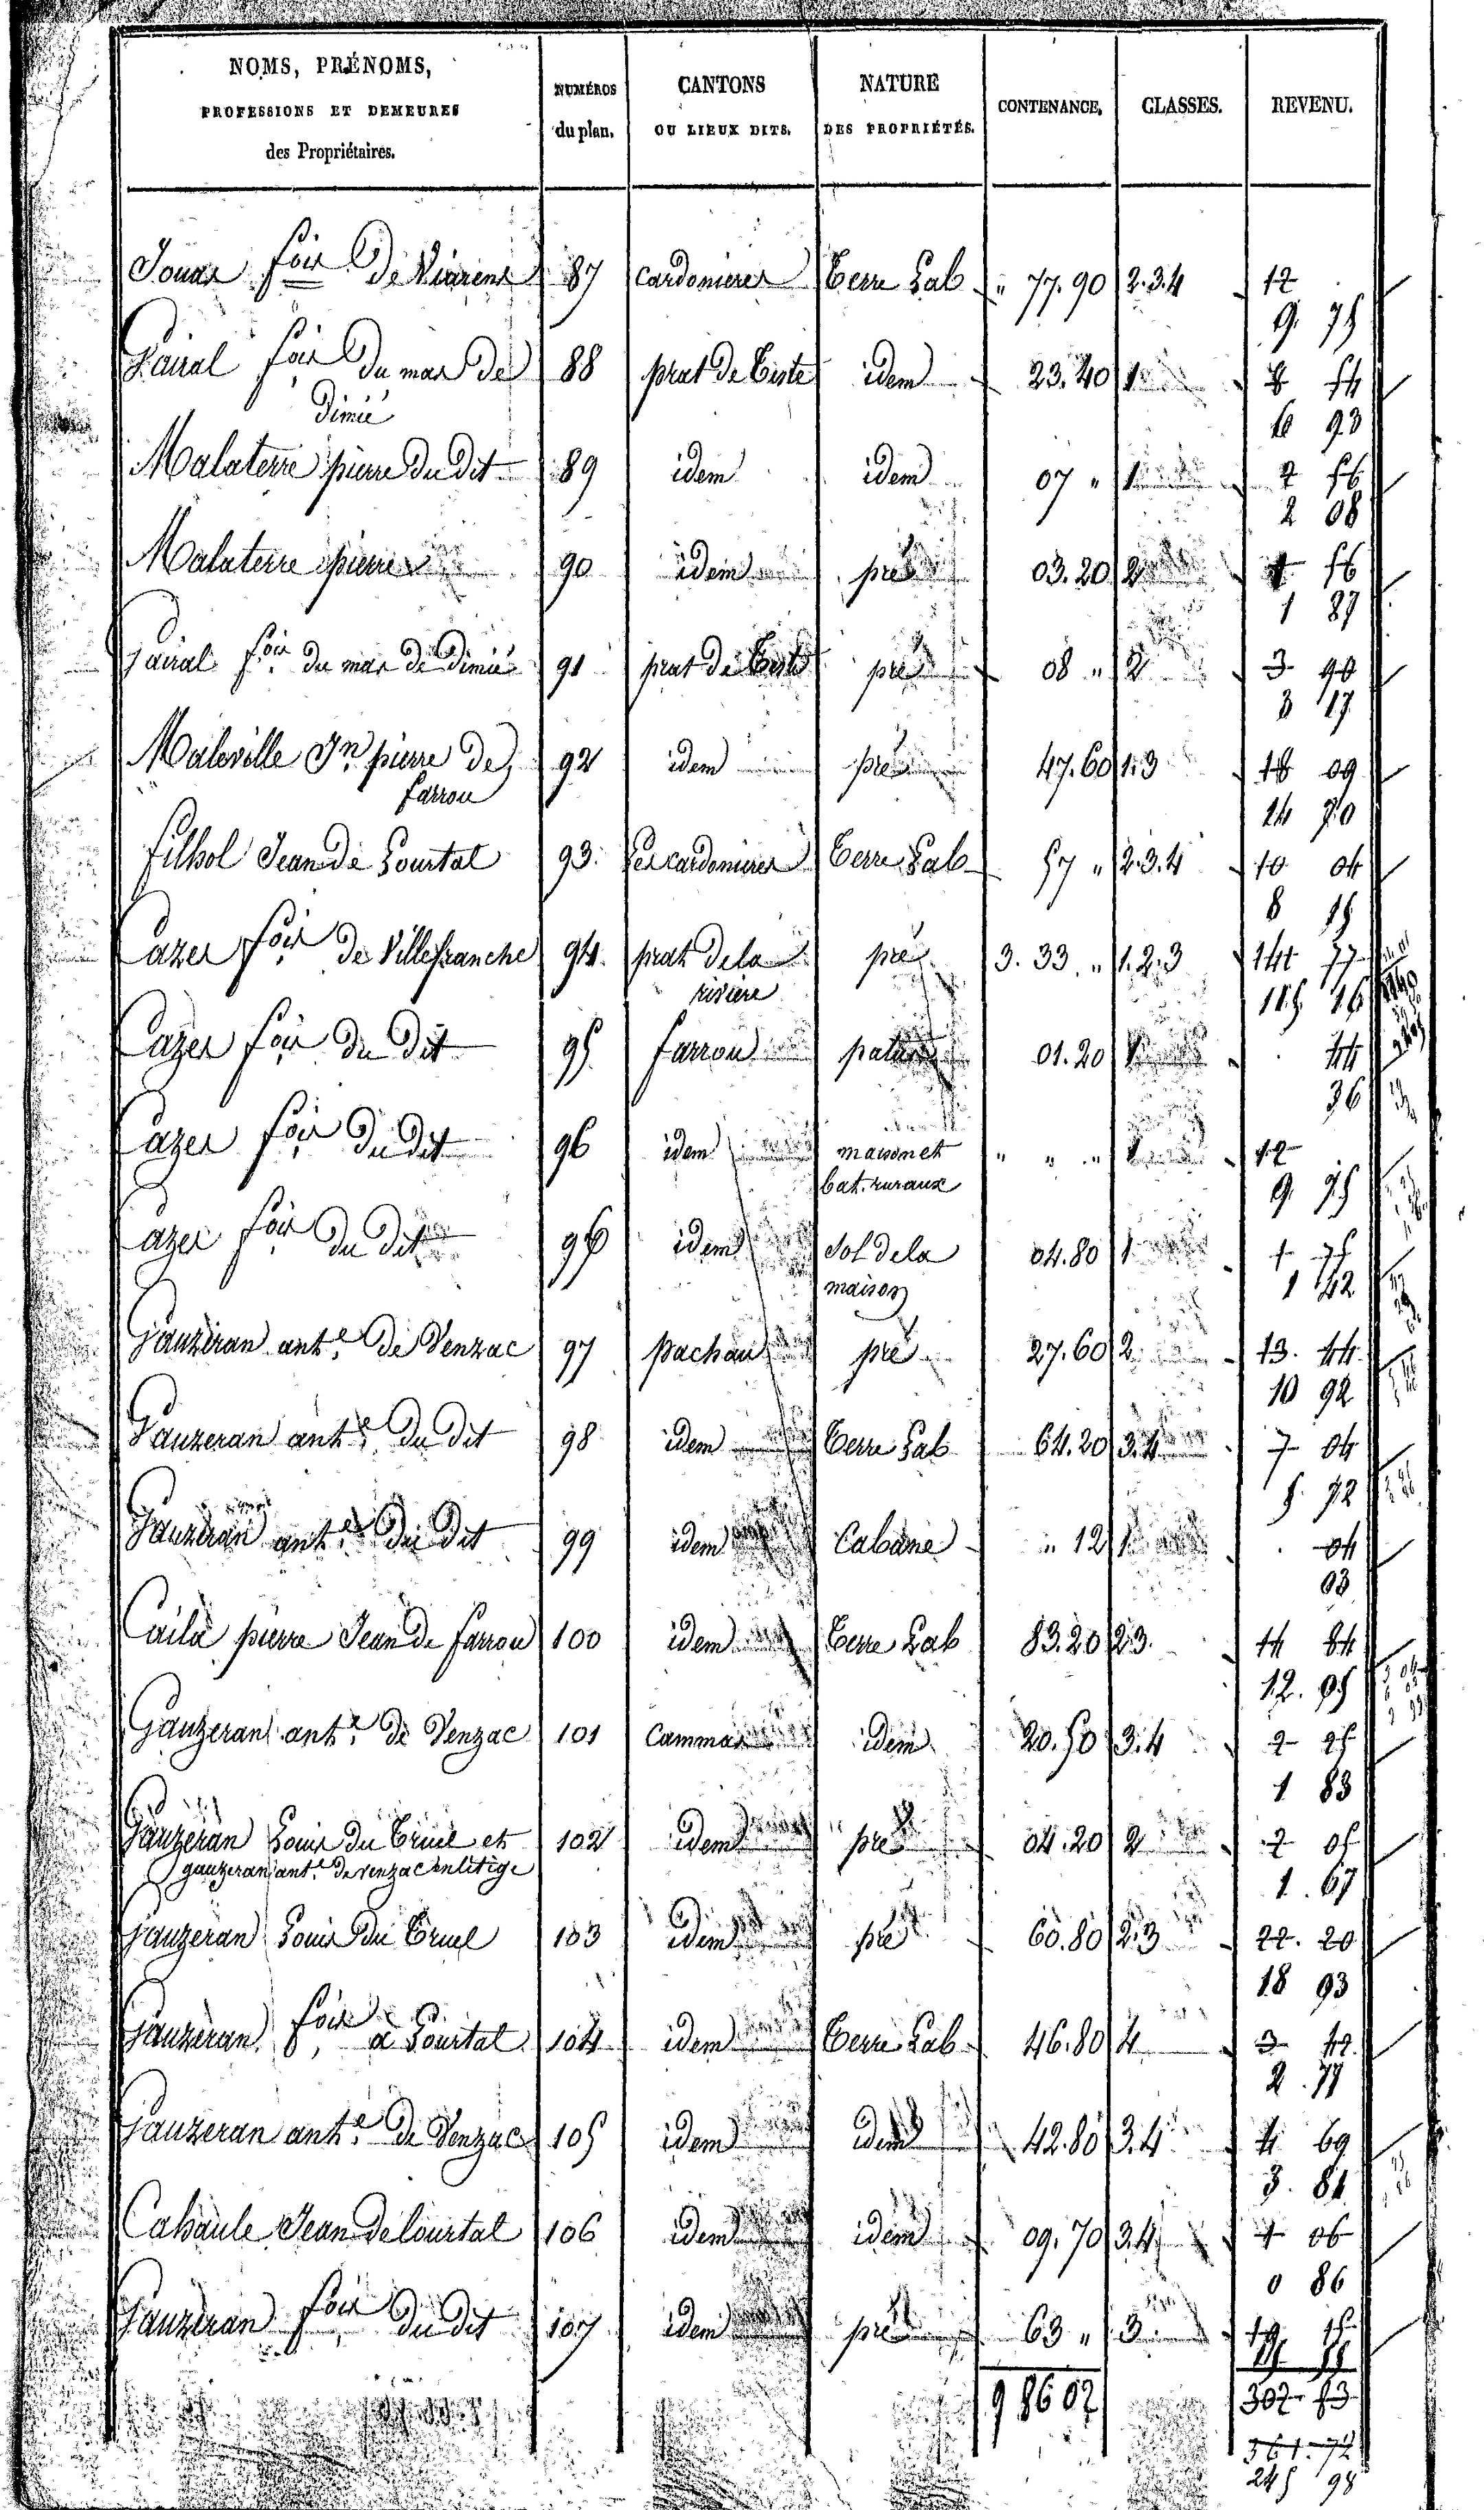 NOMS, PRÉNOMS,
PROFESSIONS ET DEMEURES
des Propriétaires.
NUMÉROS
du plan.
CANTONS
OU LIEUX DITS.
NATURE
DES PROPRIÉTÉS.
CONTENANCE. CLASSES. REVENU.
fois De 87 cardonieres Terre Lab " 77.90 2.3.4 12
9. 75
fois du mas de 88 prat de idem 23.40 1 8 54
6 93
Malaterre pierre du dit 89 idem idem 07 " 1 2 56
2 08
Malaterre pierre 90 idem pré 03.20 2 1 56
1 27
fois du mas de 91 prat de pré 08 " 2 3 90
3 17
Maleville Jn pierre de 92 idem pré 47.60 1.3 18 09
farrou 14 70
filhol Jean de Lourtal 93. Les cardonieres Terre Lab 57 " 2.3.4 10 04
8 15
Cazes fois de Villefranche 94. prat de la pré 3. 33 " 1.2.3 141 77
riviere 115 16
Cazes fois du dit 95 farrou 01.20 44
36
Cazes fois du dit 96 idem maison et " " " 12
bat. ruraux 9 75
Cazes fois du dit 96 idem Sol de la 04.80 1 1 75
maison 1 42
Gauzeran ante de Venzac 97 pachau pré 27.60 2 13. 44
10 92
Gauzeran ante du dit 98 idem Terre Lab 64.20 3.4 7 04
5. 72
Gauzeran ante du dit 99 idem Cabane " 12 1 04
03
pierre Jean de farrou 100 idem Terre Lab 83.20 2.3. 14 84
12. 05
Gauzeran ante de Venzac 101 Cammas idem 20.50 3.4 2 25
1 83
Gauzeran Louis du Truel et 102 idem pré 04.20 2 2 05
gauzeran ante de venzac en litige 1. 67
Gauzeran Louis du Truel 103 idem pré 60.80 2.3 22. 20
18 03
Gauzeran fois a Lourtal 104 idem Terre Lab 46.80 4 3 42
2. 77
Gauzeran ante de Venzac 105 idem idem 42.80 3.4 4 69
3. 81
Cabaule Jean de Lourtal 106 idem idem 09.70 3.4 1 06
0 86
Gauzeran fois du dit 107 idem pré 63 " 3
9 86 02 302 53
361. 72
245 98